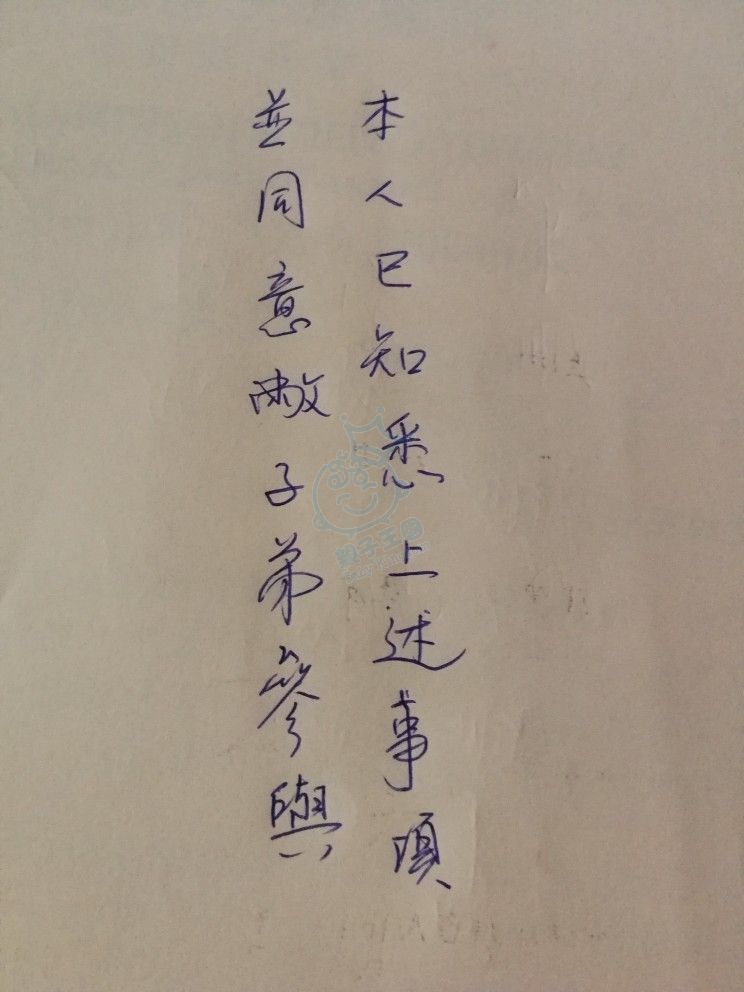 本人已知悉上述事項
並同意敝子弟參與
親子王國